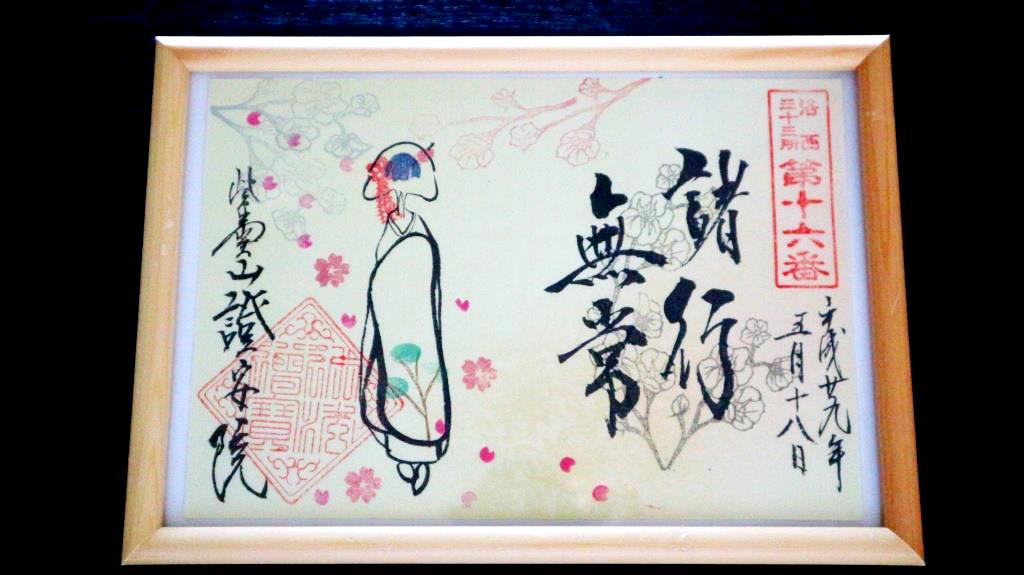 洛西
三十三所
第十六番
平成廿九年
五月十八日
諸行
無常
紫雲山證安院
佛法
僧寶